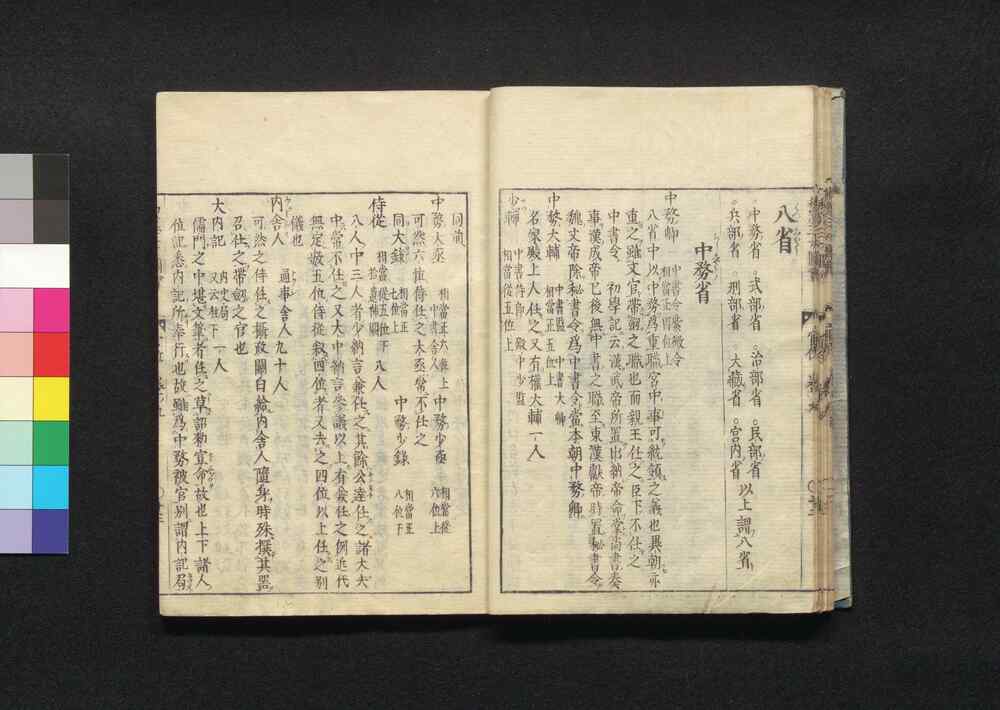 八省
中務省 式部省 治部省 民部省
兵部省 刑部省 大藏省 宮内省 以上謂八省
中務省
中務卿 中書令 紫微令 相當正四位上
八省中以中務爲重職宮中事可統領之義也異朝亦
重之雖文官帶劔之職也而親王任之臣下不任之
中書令 初學記云漢武帝所置出納帝命掌尚書奏
事漢成帝已後無中書之職至東漢獻帝時置秘書令
魏文帝除秘書令爲中書令當本朝中務卿
中務大輔 中書監 中書大卿 相當正五位上
名家殿上人任之又有權大輔一人
少輔 中書侍郎 殿中少監 相當從五位上
同前
中務大丞 相當正六位上 中書舍人 中務少丞 相當從六位上
可然六位侍任之大丞常不任之
同大錄 相當正七位上 中務少錄 相當正八位下
侍從 相當從五位下 拾遺補闕 八人
八人中三人者少納言兼任之其餘公達任之諸大夫
中常不任之又大中納言參議以上有兼任之例近代
無定數五位侍從敍四位者又去之四位以上任之別
儀也
内舍人 通事舍人 九十人
可然之侍任之攝政關白給内舍人隨身時殊撰其器
召仕之帶劔之官也
大内記 内史局 又云柱下 一人
儒門之中堪文筆者任之草詔勅宣命故也上下諸人
位記悉内記所奉行也故雖爲中務被官別謂内記局